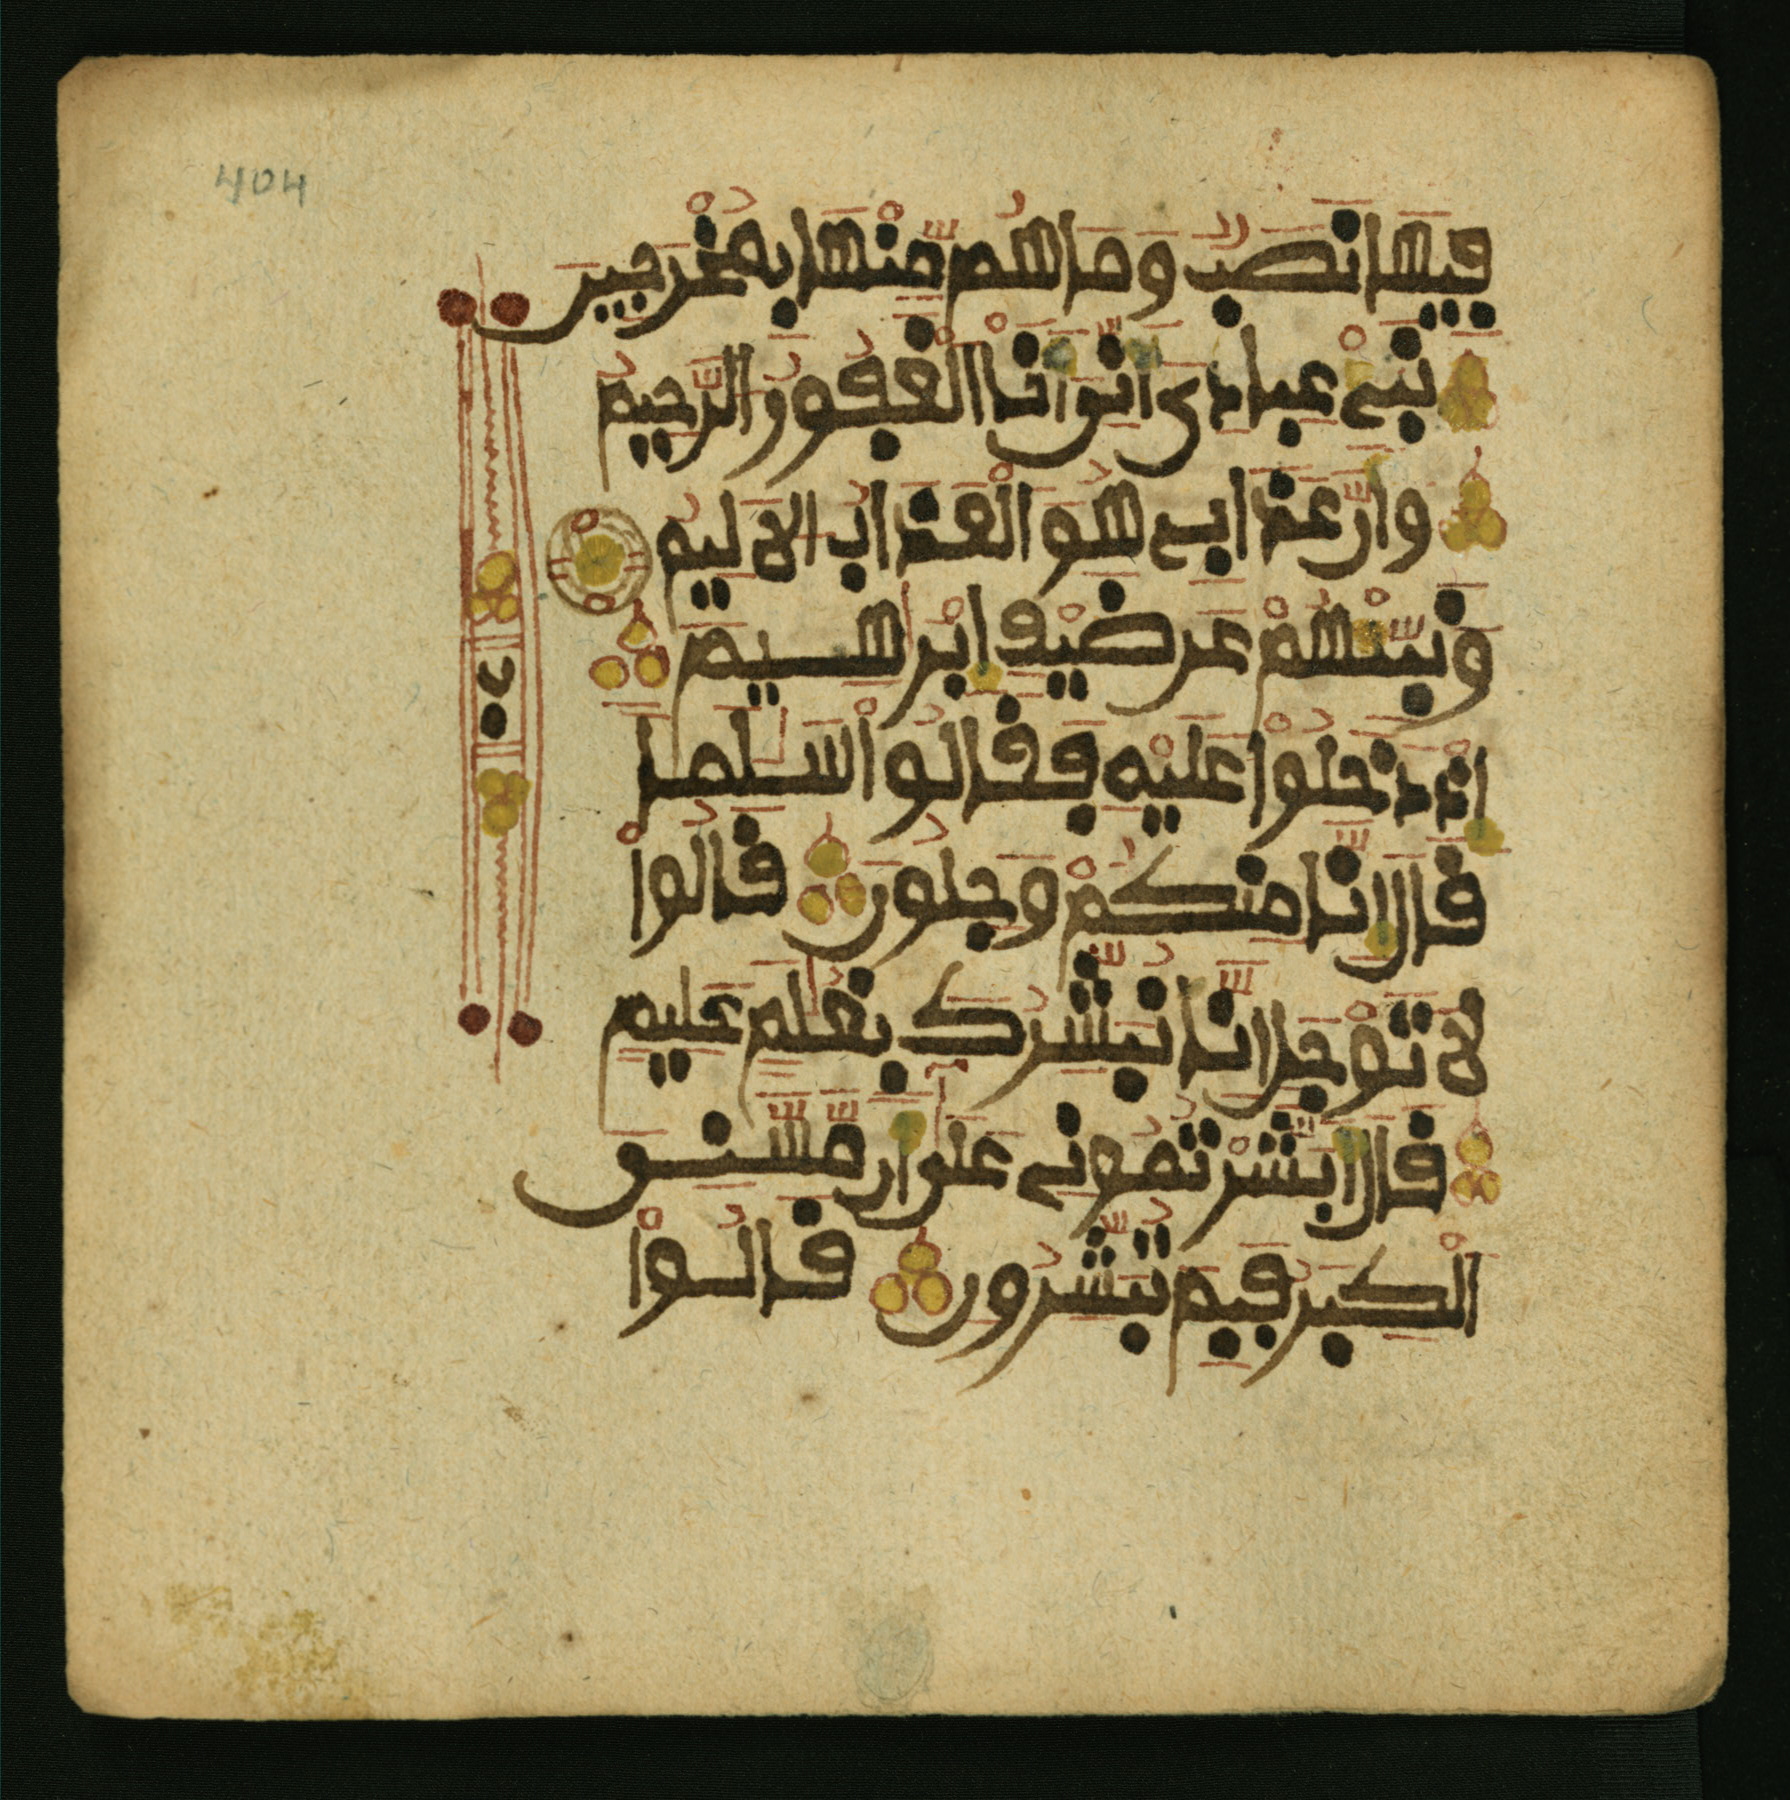 404
فِيهَا نَصَبٌ وَمَا هُم مِّنْهَا بِمُخْرَجِينَ
نَبِّئْ عِبَادِىَ أَنِّىَ أَنَا اَلْغَفُورُ الرَّحِيمُ
وَأَنَّ عَذَابِى هُوَ الْعَذَابُ الَالِيمُ
وَنَبِّئْهُمْ عَن ضَيْفِ إِبْرَاهِيمَ
إِذْ دَخَلُواْ عَلَيْهِ فَقَالُواْ سَلَٰماً
قَالَ إِنَّا مِنكُمْ وَجِلُونَ قَالُواْ
لَا تَوْجَلِ انَّا نُبَشِّرُكَ بِغُلَٰمٍ عَلِيمٍ
قَالَ أَبَشَّرْتُمُونِى عَلَىٰ أَن مَّسَّنِىَ
اَلْكِبَرُ فَبِمَ تُبَشِّرُونِ قَالُواْ